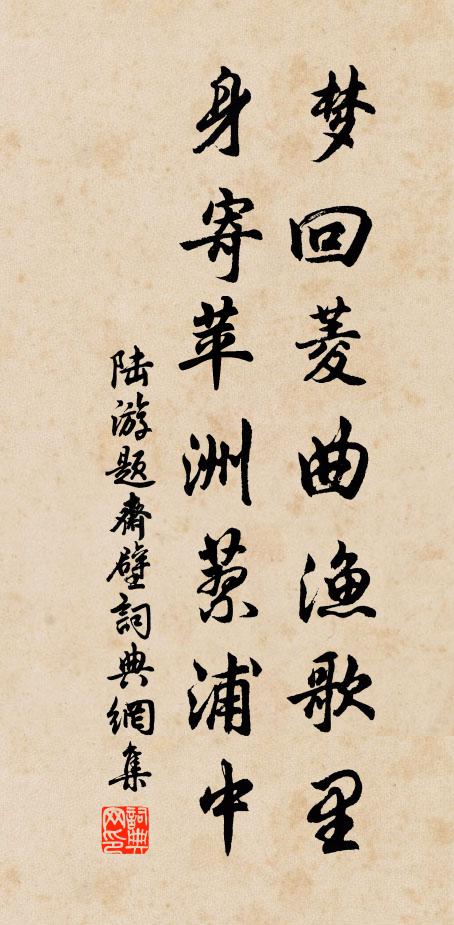 梦回菱曲渔歌里
身寄苹洲蓼浦中
陆游题齋壁詞典網集
詞典网印